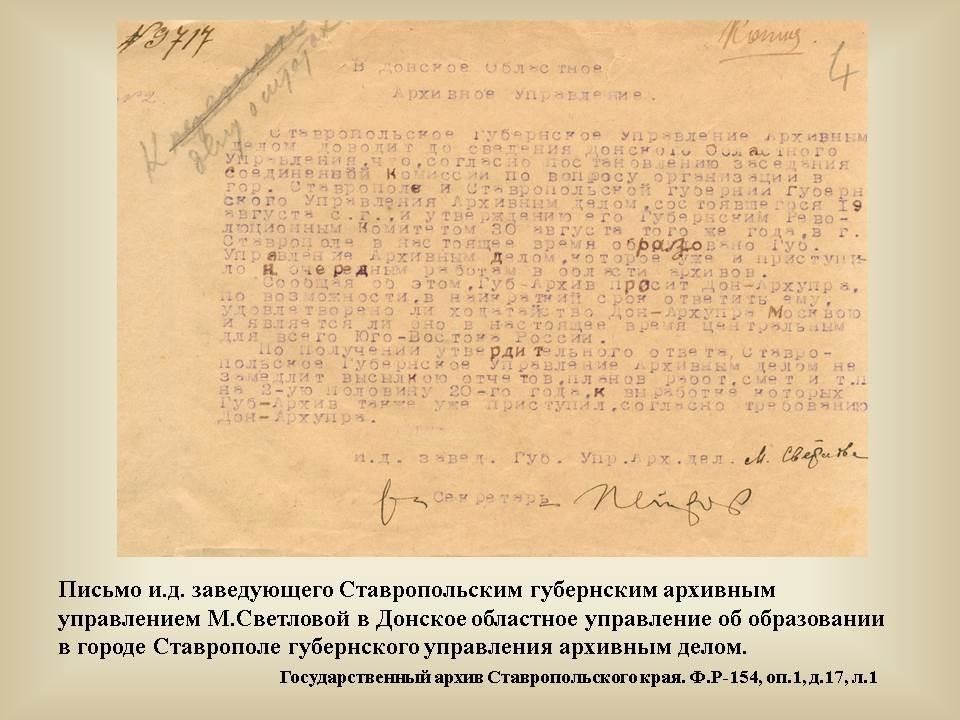 №9717
Копия.
4
К
делу о штатах
В Донское Областное
Архивное Управление.
Ставропольское Губернское Управление Архивным
делом доводит до сведения Донского Областного
Управления,что,согласно постановлению заседания
соединенный Комиссии по вопросу организации в
гор. Ставрополе и Ставропольской губернии Губерн
ского Управления Архивным делом,состоявшегося 19
августа с.г.,и утверждению его Губернским Рево-
люционным Комитетом 30 августа того же года,в г.
Ставрополе в настоящее время образовано Губ.
Управление Архивным делом,которое уже и приступи-
ло к очередным работам в области архивов.
Сообщая об этом,Губ-Архив просит Дон-Архупра,
по возможности,в наикраткий срок ответить ему,
удовлетворено ли ходатайство Дон-Архупра Москвою
и является ли оно в настоящее время центральным
для всего Юго-Востока России.
По получении утвердительного ответа,Ставро-
польское Губернское Управление Архивным делом не
замедлит высылкою отчетов,планов работ,смет и т.п
на 2-ую половину 20-го года,к выработке которых
Губ-Архив также уже приступил,согласно требованию
Дон-Архупра.
и.д. завед. Губ. Упр.Арх.дел. М. Светлова
Секретарь Петров
Письмо и.д. заведующего Ставропольским губернским архивным
управлением М.Светловой в Донское областное управление об образовании
в городе Ставрополе губернского управления архивным делом.
Государственный архив Ставропольского края. Ф.Р-154, оп.1, д.17, л.1